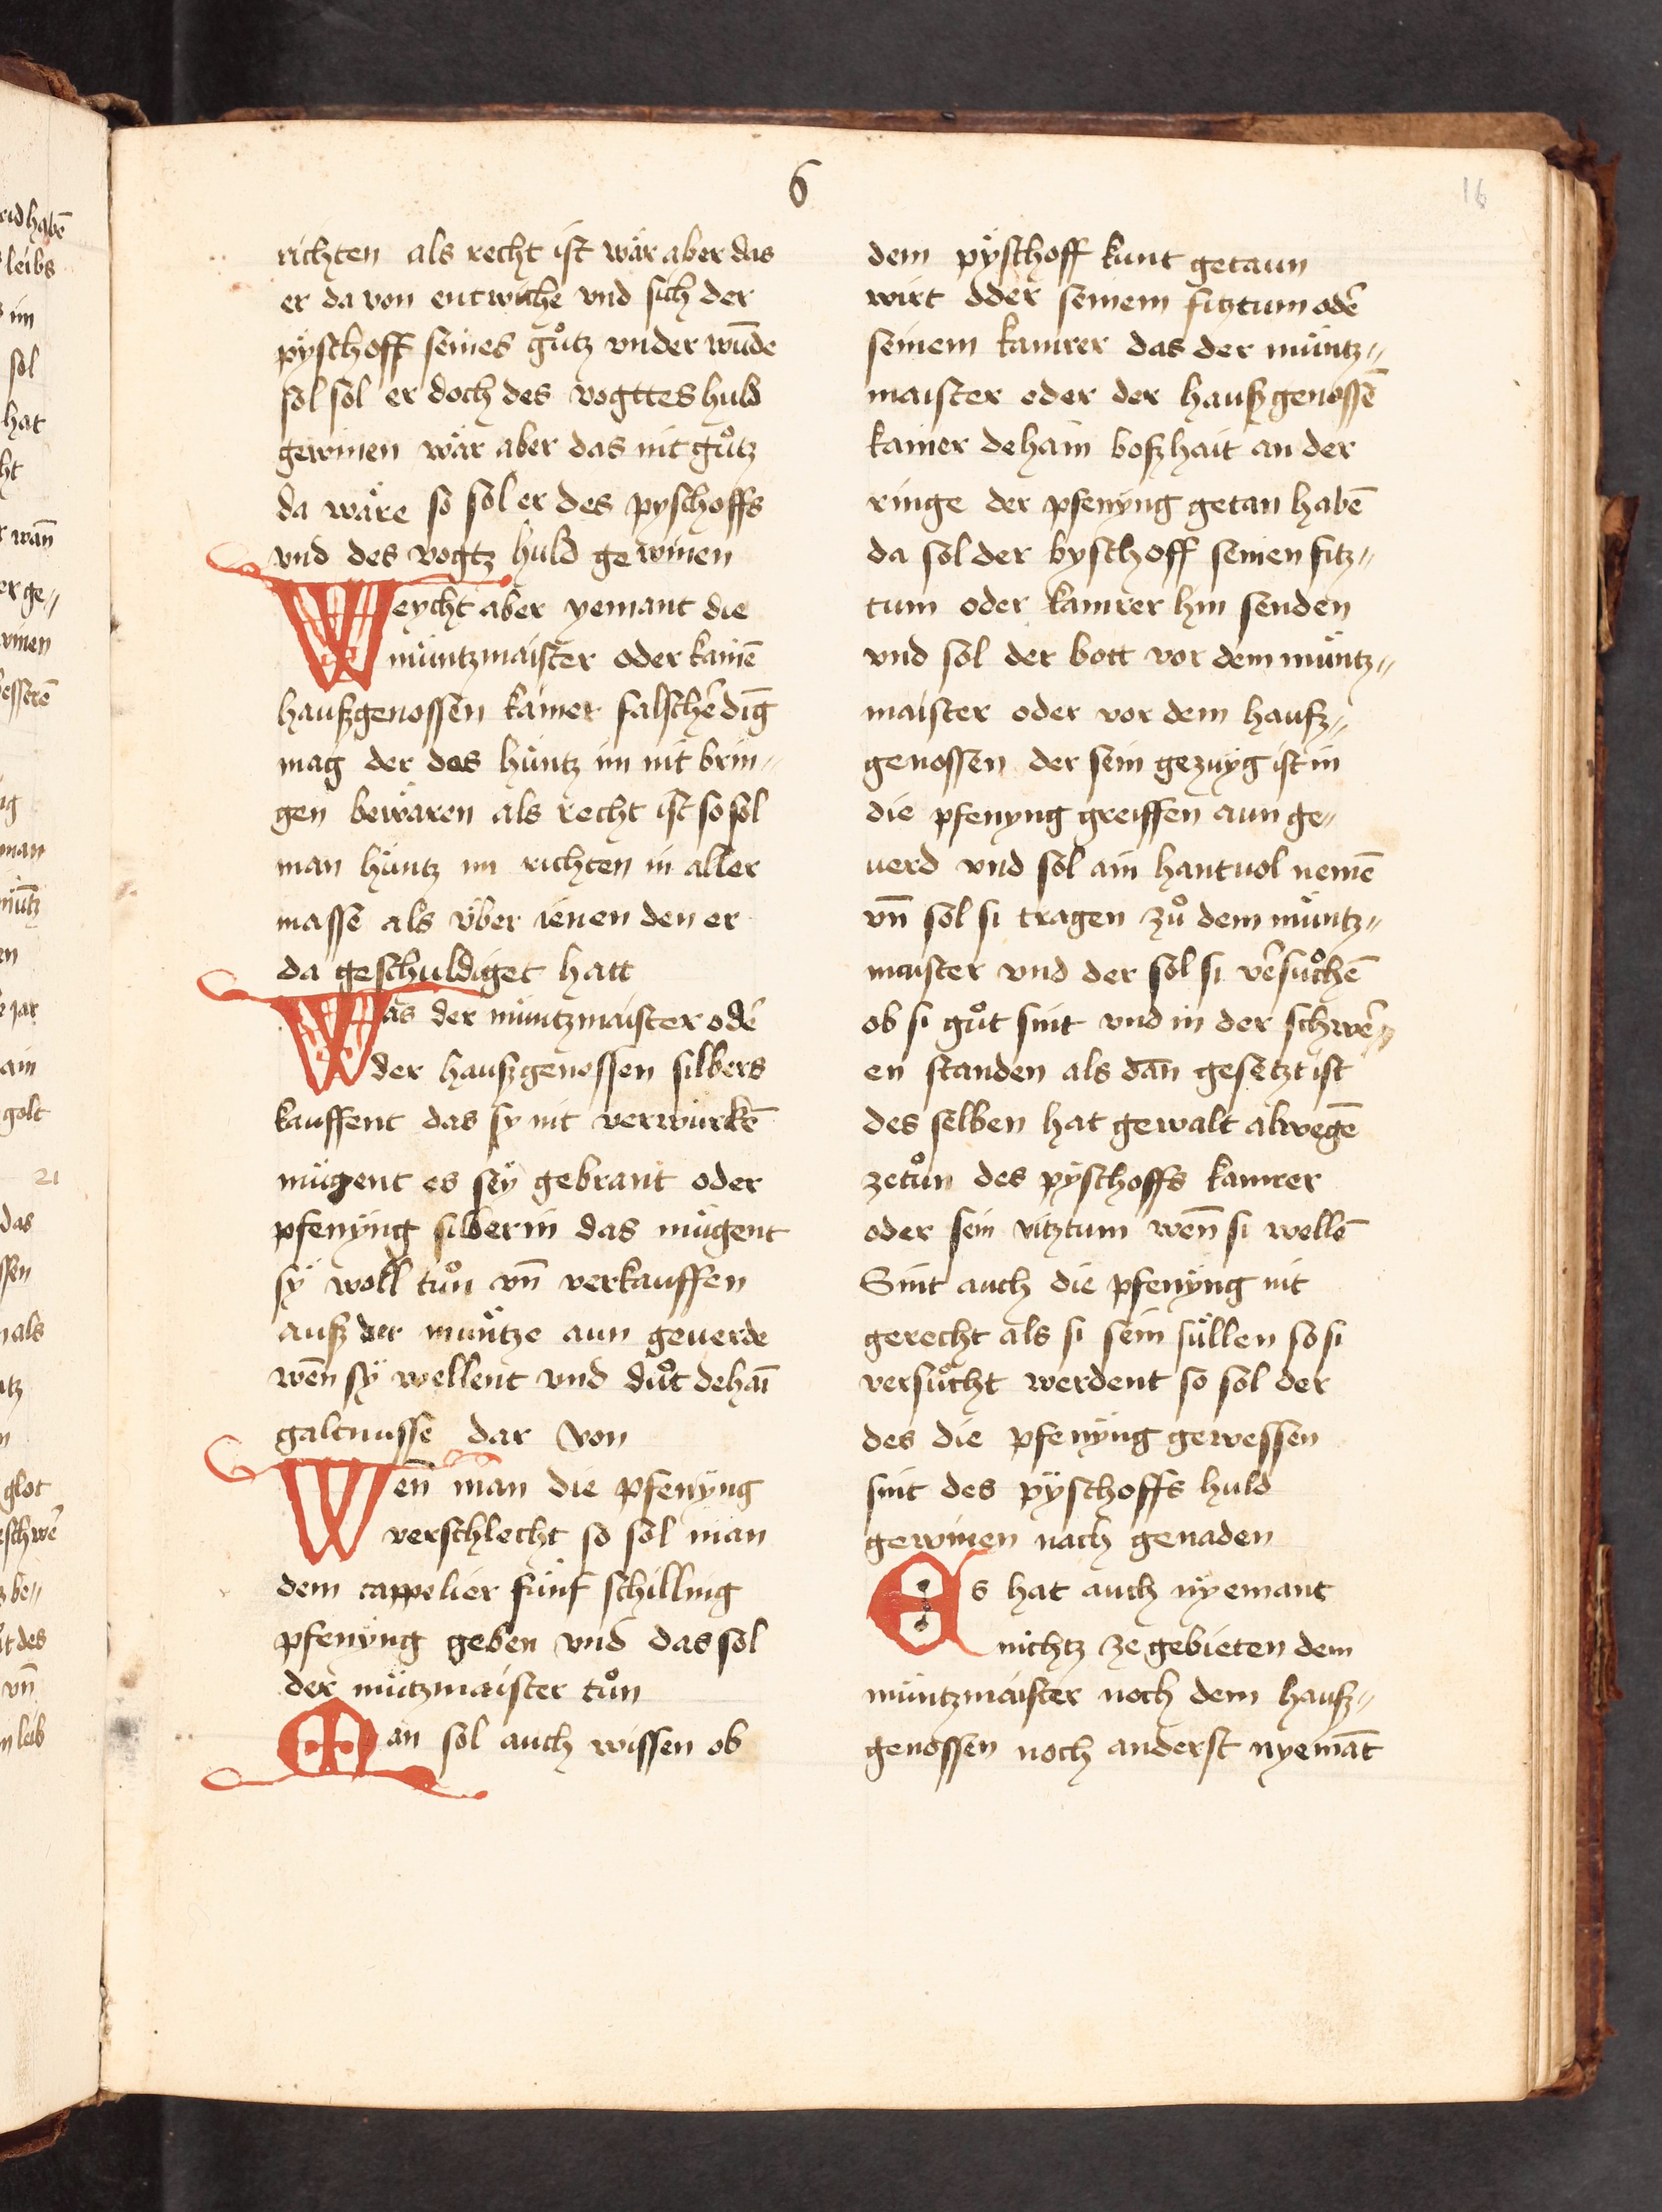 6
16
richten als recht ist wär aber das
er da von entwiche vnd sich der
pÿschoff seines gůtz vnder wūde
sol sol er doch des vogttes huld
gewinen wär aber das nit gůtz
da wäre so sol er des pyschoffs
vnd des vogtz huld gewinen
Weycht aber yemant die
müntzmaister oder kainē
haußgenossen kainer falschē dīg
mag der das hüntz im nit brin-
gen bewären als recht ist so sol
man hüntz im richten in aller
masse als über ienen den er
da geschuldiget hatt
Was der müntzmaister odē
der haußgenossen silbers
kauffent das sy nit verwürkē
mügent es sÿ gebrant oder
pfenÿng silberin das mügent
sÿ woll tůn vn̄ verkauffen
auß der müntze aun geuerde
wēn sÿ wellent vnd důt dehaī
galtnusse dar von
Wen̄ man die pfenÿng
verschlecht so sol man
dem cappelier fünf schilling
pfenÿng geben vnd das sol
der mützmaister tůn
Man sol auch wissen ob
dem pÿschoff kunt getaun
wirt dder seinem fitztum odē
seinem kamrer das der müntz-
maister oder der haußgenossē
kainer dehain boßhait an der
ringe der pfenÿng getan habē
da sol der byschoff seinen fitz-
tum oder kamrer hin senden
vnd sol der bott vor dem müntz-
maister oder vor dem hauß-
genossen der sein gezuyg ist in
die pfenyng greiffen aun ge-
uerd vnd sol ain hantuol nemē
vn̄ sol si tragen zů dem müntz-
maister vnd der sol si vēsůchē
ob si gůt sint vnd in der schwē-
en standen als dan̄ gesetzt ist
des selben hat gewalt alwegē
zetůn des pÿschoffs kamrer
oder sein vitztum wen̄ si wellē
Sint auch die pfenÿng nit
gerecht als si sein süllen so si
versůcht werdent so sol der
des die pfenÿng gewessen
sint des pÿschoffs huld
gewinen nach genaden
Es hat auch nÿemant
nichtz ze gebieten dem
müntzmaister noch dem hauß-
genossen noch anderst nyemāt